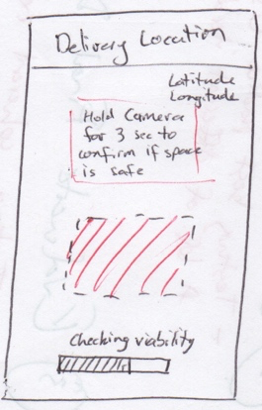 Delivery Location
Latitude
Longitude
Hold Camera
for 3 sec to
confirm if space
is safe
Checking viability